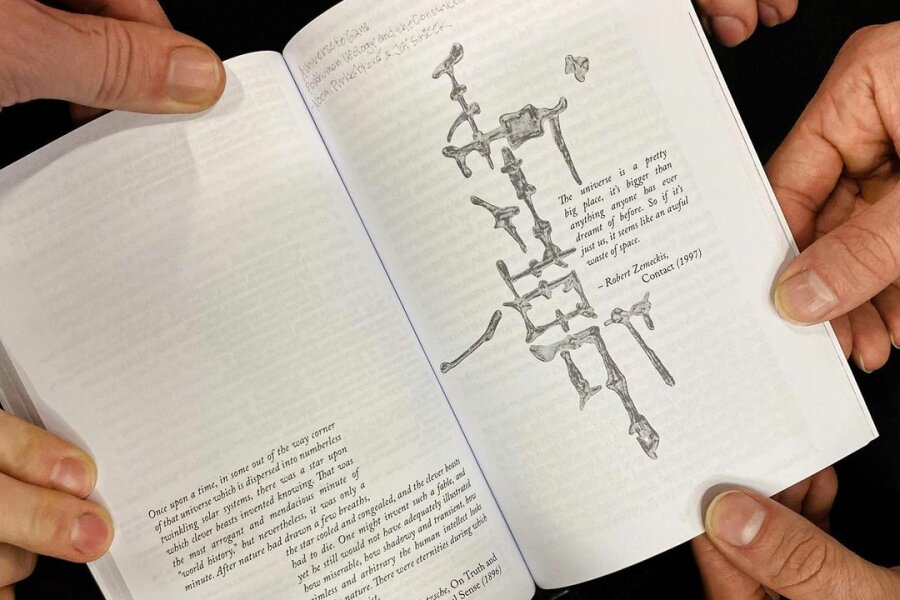 Once upon a time, in some out of the way corner
of that universe which is dispersed into numberless
twinkling solar systems, there was a star upon
which clever beasts invented knowing. That was
the most arrogant and mendacious minute of
"world history," but nevertheless, it was only a
minute. After nature had drawn a few breaths,
the star cooled and congealed, and the clever beasts
had to die. One might invent such a fable, and
yet he still would not have adequately illustrated
how miserable, how shadowy and transient, how
aimless and arbitrary the human intellect looks
nature. There were eternities during which
On Truth and
Sense (1896)
Universe to
Posthuman and the
& Jiří
The universe is a pretty
big place, it's bigger than
anything anyone has ever
dreamt of before. So if it's
just us, it seems like an awful
waste of space.
– Robert Zemeckis,
Contact (1997)